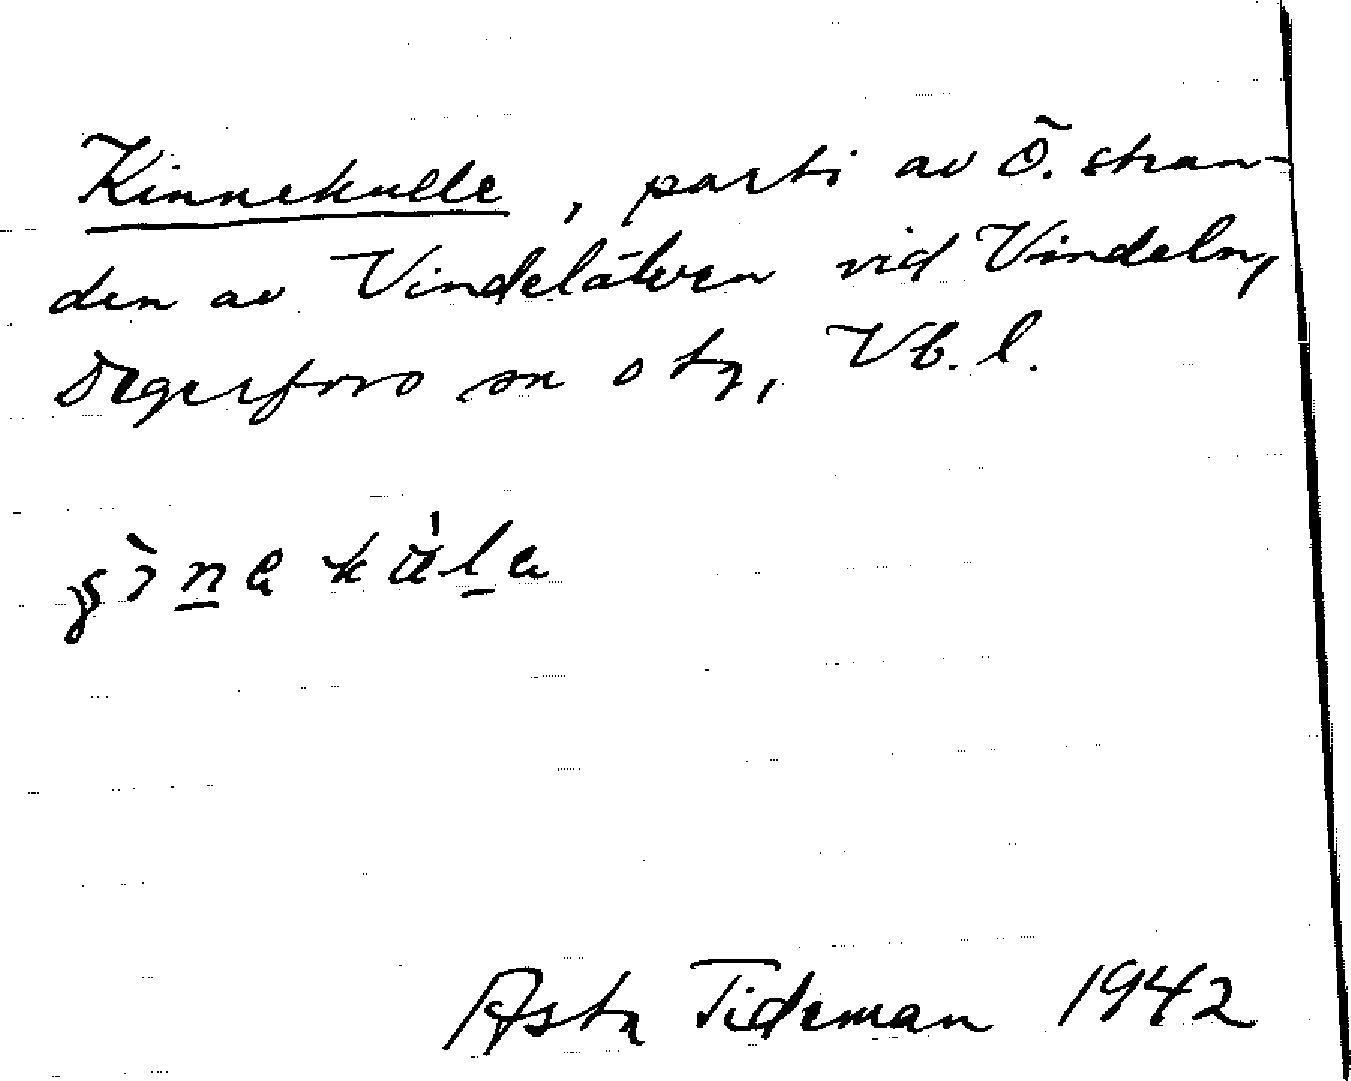 Kinnekulle, parti av Ö. stran-
den av Vindelälven vid Vindeln,
Degerfors sn o tg, Vb. l.
Asta Tideman 1942